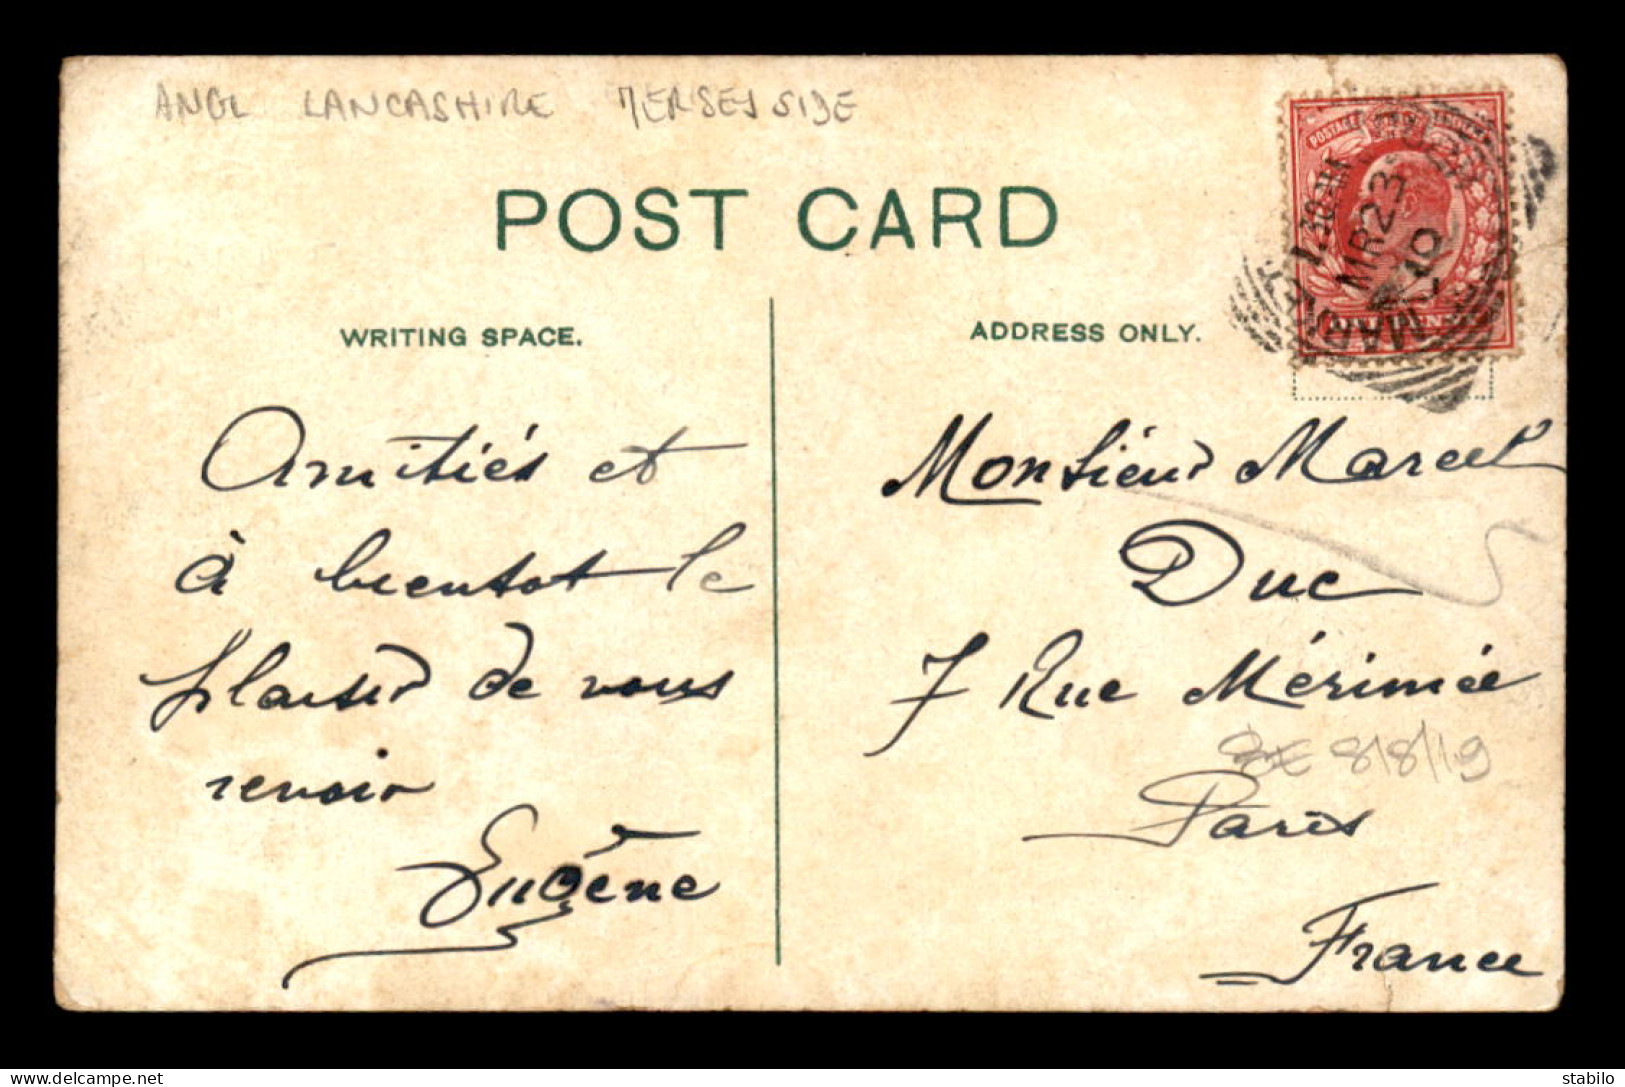 ANGL LANCASHIRE MERSEYSIDE
POST CARD
WRITING SPACE.
ADDRESS ONLY.
Amitiés et
à bientot le
plaisir de vous
revoir
Eugène
Monsieur Marcel
Duc
7 Rue Mérimée
8/8/19
Paris
France
POSTAGE
MR 23
10
delcampe.net
stabilo